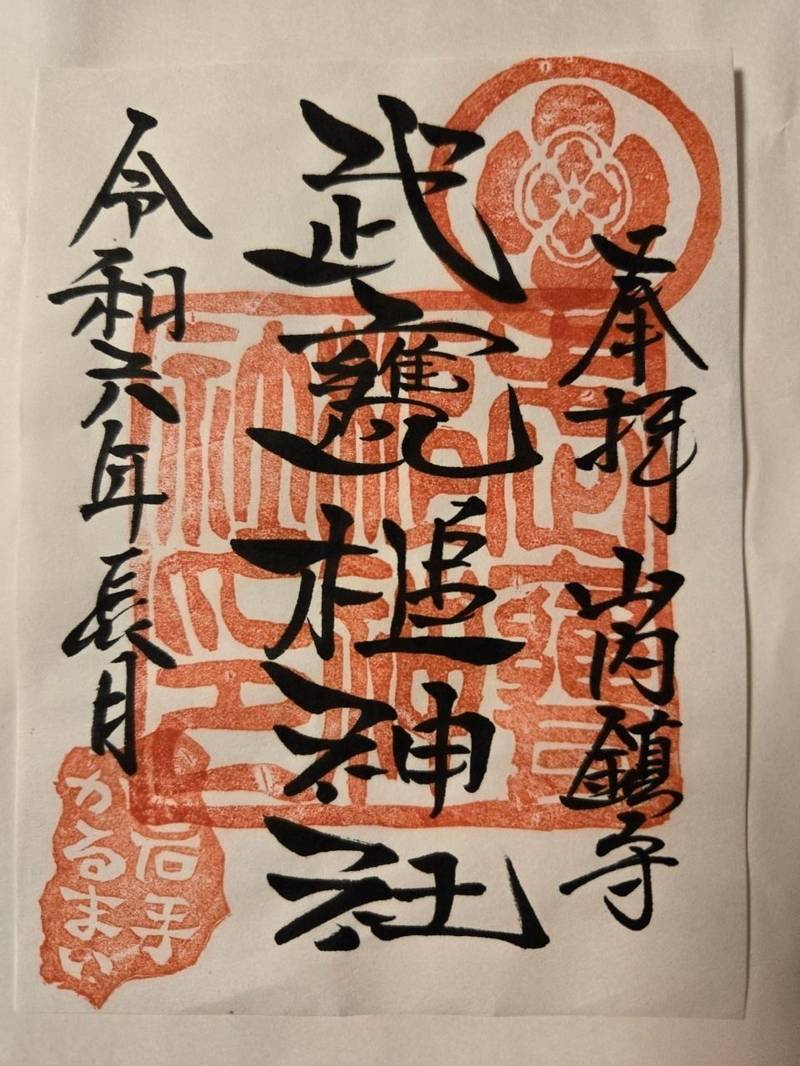 奉拝 山内鎮守
武甕槌神社
令和六年長月
岩手
かるまい